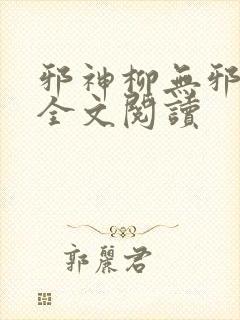 邪神柳無邪
全文閱讀
郭麗君